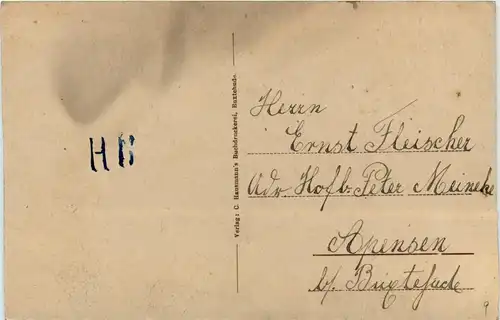 HB
Verlag: C. Hausmann's Buchdruckerei, Buxtehude.
Herrn
Ernst Fleischer
Adr. Hofb. Peter Meineke
Apensen
b/. Buxtehude
9